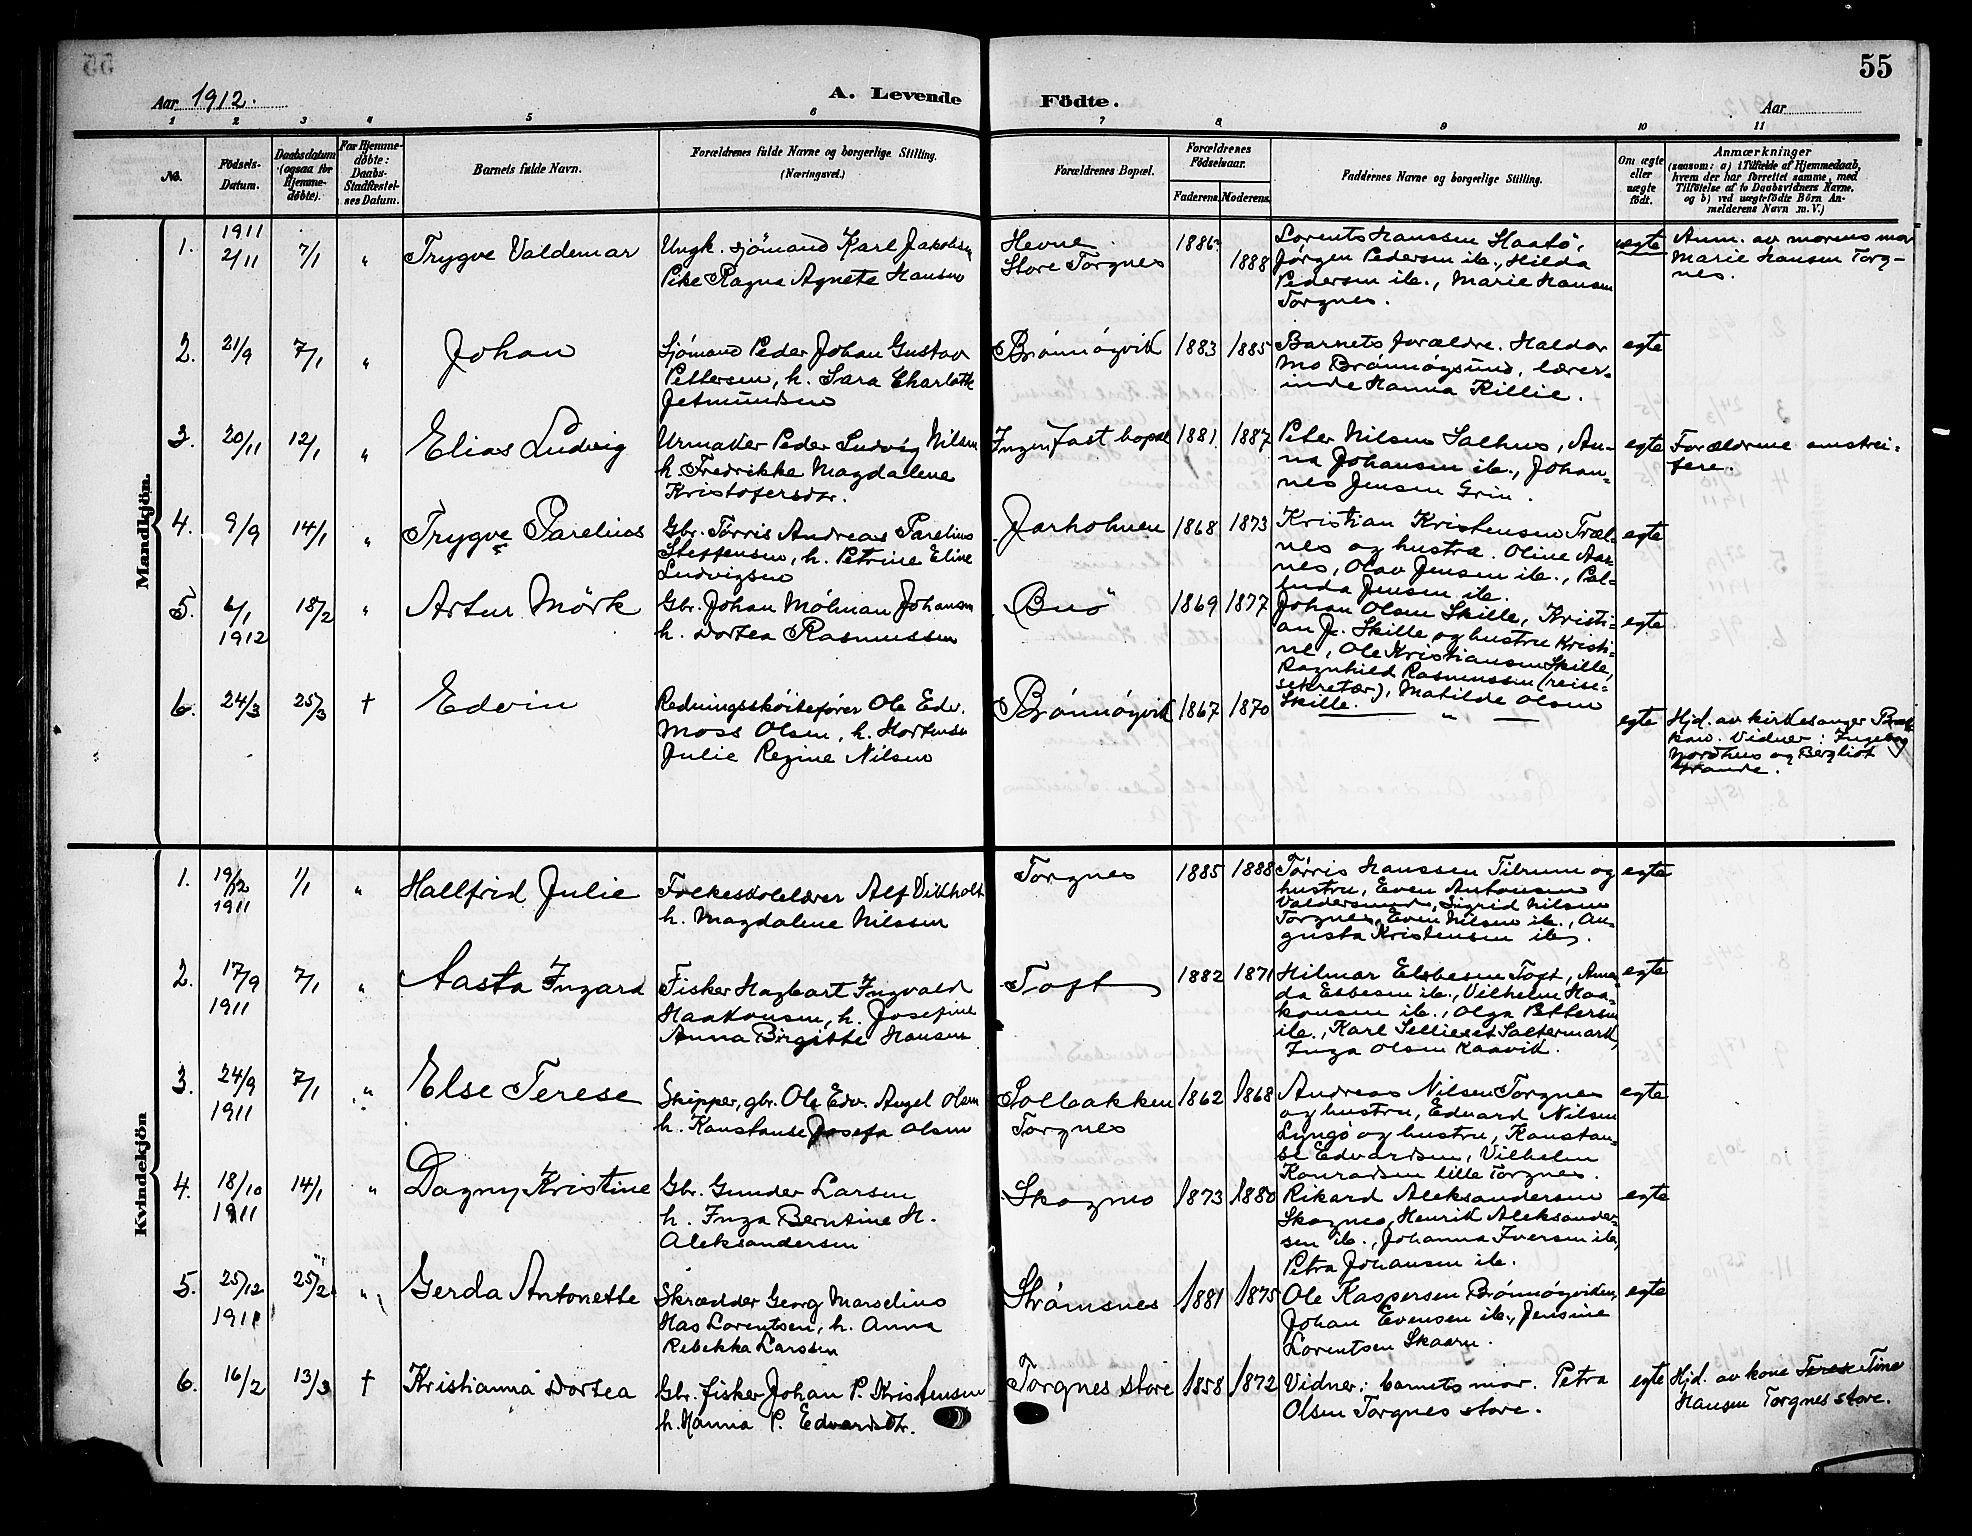 55
Aar 1912.
A. Levende
Födte.
Aar
1 2 3 4 5 6 7 8 9 10 11
No.
Födsels-
Datum.
Daabsdatum
(ogsaa for
Hjemme-
døbte).
For Hjemme-
døbte:
Daabs-
Stadfæstel-
ses Datum.
Barnets fulde Navn.
Forældrenes fulde Navne og borgerlige Stilling.
(Næringsvei.)
Forældrenes Bopæl.
Forældrenes
Fødselsaar.
Faderens. Moderens.
Faddernes Navne og borgerlige Stilling.
Om ægte
eller
uægte
født.
Anmærkninger
(saasom: a) i Tilfælde af Hjemmedaab,
hvem der har forrettet samme, med
Tilføielse af to Daabsvidners Navne,
og b) ved uægtefødte Börn An-
melderens Navn m. V.)
Mandkjön.
1.
1911
2/11
7/1
"
Trygve Valdemar
Ungk. sjømand Karl Jakobsen
Pike Ragna Agnete Hansen
Hevne
Store Torgnes
1886
1888
Lorents Hanssen Haatö,
Jørgen Pedersen ib., Hilda
Pedersen ib., Marie Hansen
Torgnes.
uegte
Anm. av morens mor
Marie Hansen Torg-
nes.
2.
21/9
7/1
"
Johan
Sjømand Peder Johan Gustav
Pettersen, h. Sara Charlotte
Jetmundsen
Brønnøyvik
1883
1885
Barnets forældre. Haldor
Mo Brønnøysund, lærer-
inde Hanna Killie.
egte
3.
20/11
12/1
"
Elias Ludvig
Urmaker Peder Ludvig Nilsen
h. Fredrikke Magdalene
Kristofersdtr.
Ingen fast bopæl
1881
1887
Peter Nilsen Salhus, An-
na Johansen ib., Johan-
nes Jensen Grin.
egte
Forældrene omstrei-
fere.
4.
9/9
14/1
"
Trygve Parelius
Gbr. Tørris Andreas Parelius
Steffensen, h. Petrine Eline
Ludvigsen
Jarholmen
1868
1873
Kristian Kristensen Træl-
nes og hustru. Oline Aar-
nes, Olav Jensen ib., Pal-
frida Jensen ib.
egte
5.
6/1
1912
18/2
"
Artur Mörk
Gbr. Johan Mølman Johansen
h. Dortea Rasmussen
Buö
1869
1877
Johan Olsen Skille, Kristi-
an J. Skille og hustru Kristi-
ne, Ole Kristiansen Skille,
Ragnhild Rasmussen (reise-
sekretær), Matilde Olsen
Skille.
egte
6.
24/3
25/3
†
Edvin
Redningsskøitefører Ole Edv.
Moss Olsen, h. Hortense
Julie Regine Nilsen
Brønnøyvik
1867
1870
"
egte
Hjd. av kirkesanger Bræk
kan. Vidner: Ingeborg
Nordhus og Bergliot
Grande.
Kvindekjön
1.
19/12
1911
1/1
"
Hallfrid Julie
Folkeskolelærer Alf Vikholt
h. Magdalene Nilssen
Torgnes
1885
1888
Tørris Hanssen Tilrum og
hustru, Even Antonsen
Valdersund, Sigrid Nilsen
Torgnes, Even Nilsen ib., Au-
gusta Kristensen ib.
egte
2.
17/9
1911
7/1
"
Aasta Ingard
Fisker Hagbart Ingvald
Haakonsen, h. Josefine
Anna Birgitte Hansen
Toft
1882
1871
Hilmar Elsbesen Toft, Aman-
da Esbesen ib., Vilhelm Haa-
konsen ib., Olga Pettersen
ib., Karl Selliesen Saltermark,
Inga Olsen Kaavik.
egte
3.
24/9
1911
7/1
"
Else Terese
Skipper, gbr. Ole Edv. Angel Olsen
h. Konstanse Josefa Olsen
Solbakken
Torgnes
1862
1868
Andreas Nilsen Torgnes
og hustru, Edvard Nilsen
Lyngö og hustru, Konstan-
se Edvardsen, Vilhelm
Konradsen lille Torgnes.
egte
4.
18/10
1911
14/1
"
Dagny Kristine
Gbr. Gunder Larsen
h. Inga Berntine H.
Aleksandersen
Skogmo
1873
1880
Rikard Aleksandersen
Skogmo, Henrik Aleksander-
sen ib., Johanna Iversen ib.,
Petra Johansen ib.
egte
5.
25/12
1911
25/2
"
Gerda Antonette
Skrædder Georg Marselius
Has Lorentsen, h. Anna
Rebekka Larssen
Strømsnes
1881
1875
Ole Kaspersen Brønnøyviken,
Johan Evensen ib., Jensine
Lorentsen Skaarn.
egte
6.
16/2
13/3
†
Kristianna Dortea
Gbr. fisker Johan P. Kristensen
h. Hanna P. Edvardsdtr.
Torgnes store
1858
1872
Vidner: barnets mor. Petra
Olsen Torgnes store.
egte
Hjd. av kone Terese Tine
Hansen Torgnes store.